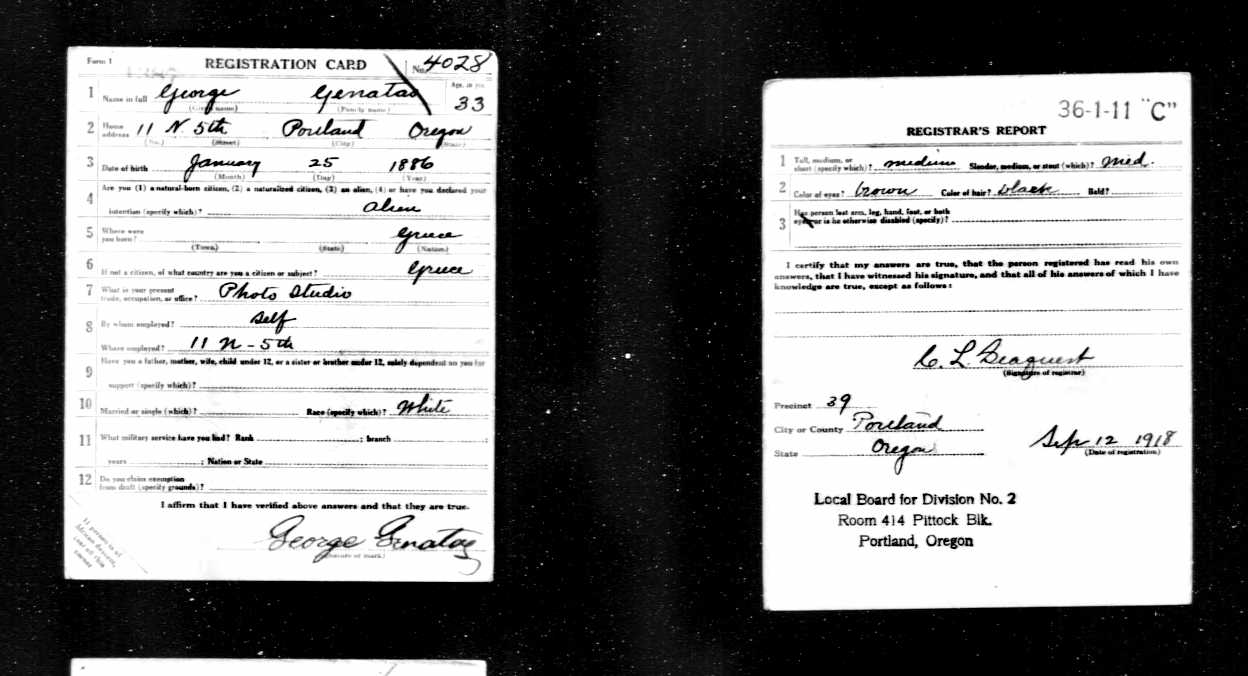 Form 1 REGISTRATION CARD No. 4028
1 Name in full George Genatas Age, in yrs. 33
(Given name) (Family name)
2 Home address 11 N. 5th Portland Oregon
(No.) (Street) (City) (State)
3 Date of birth January 25 1886
(Month) (Day) (Year)
4 Are you (1) a natural-born citizen, (2) a naturalized citizen, (3) an alien, (4) or have you declared your
intention (specify which)? Alien
5 Where were you born? Greece
(Town) (State) (Nation)
6 If not a citizen, of what country are you a citizen or subject? Greece
7 What is your present trade, occupation, or office? Photo Studio
8 By whom employed? Self
Where employed? 11 N - 5th
9 Have you a father, mother, wife, child under 12, or a sister or brother under 12, solely dependent on you for
support (specify which)?
10 Married or single (which)? Race (specify which)? White
11 What military service have you had? Rank ; branch ;
years ; Nation or State
12 Do you claim exemption
from draft (specify grounds)?
I affirm that I have verified above answers and that they are true.
George Genatas
(Signature or mark)
If person is of
African descent,
tear off this
corner
36-1-11 "C"
REGISTRAR'S REPORT
1 Tall, medium, or short (specify which)? medium Slender, medium, or stout (which)? Med.
2 Color of eyes? brown Color of hair? black Bald?
3 Has person lost arm, leg, hand, foot, or both
eyes, or is he otherwise disabled (specify)?
I certify that my answers are true, that the person registered has read his own
answers, that I have witnessed his signature, and that all of his answers of which I have
knowledge are true, except as follows:
C. L. Seaquest
(Signature of registrar)
Precinct 39
City or County Portland
State Oregon Sep 12 1918
(Date of registration)
Local Board for Division No. 2
Room 414 Pittock Blk.
Portland, Oregon